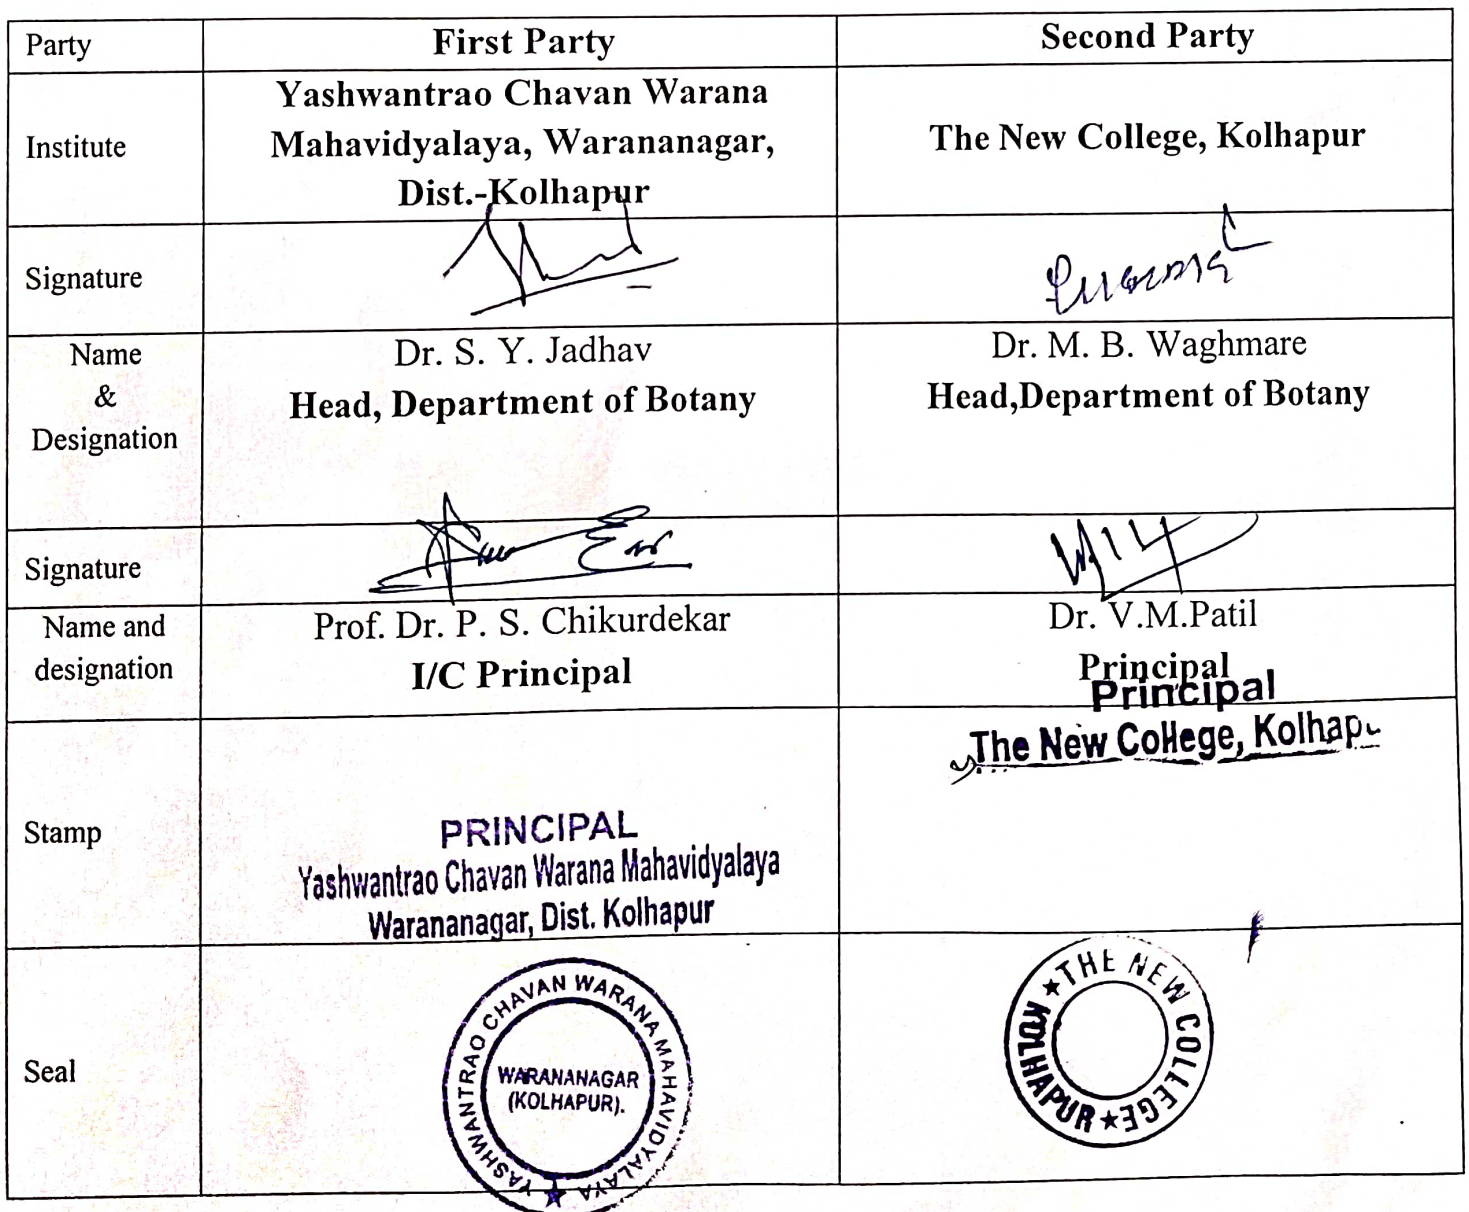 Party First Party Second Party
Institute
Yashwantrao Chavan Warana
Mahavidyalaya, Warananagar,
Dist.-Kolhapur
The New College, Kolhapur
Signature
Name
&
Designation
Dr. S. Y. Jadhav
Head, Department of Botany
Dr. M. B. Waghmare
Head,Department of Botany
Signature
Name and
designation
Prof. Dr. P. S. Chikurdekar
I/C Principal
Dr. V.M.Patil
Principal
Stamp
PRINCIPAL
Yashwantrao Chavan Warana Mahavidyalaya
Warananagar, Dist. Kolhapur
Principal
The New College,
Seal
YASHWANTRAO CHAVAN WARANA MAHAVIDYALAYA
WARANANAGAR
(KOLHAPUR).
THE NEW COLLEGE
KOLHAPUR